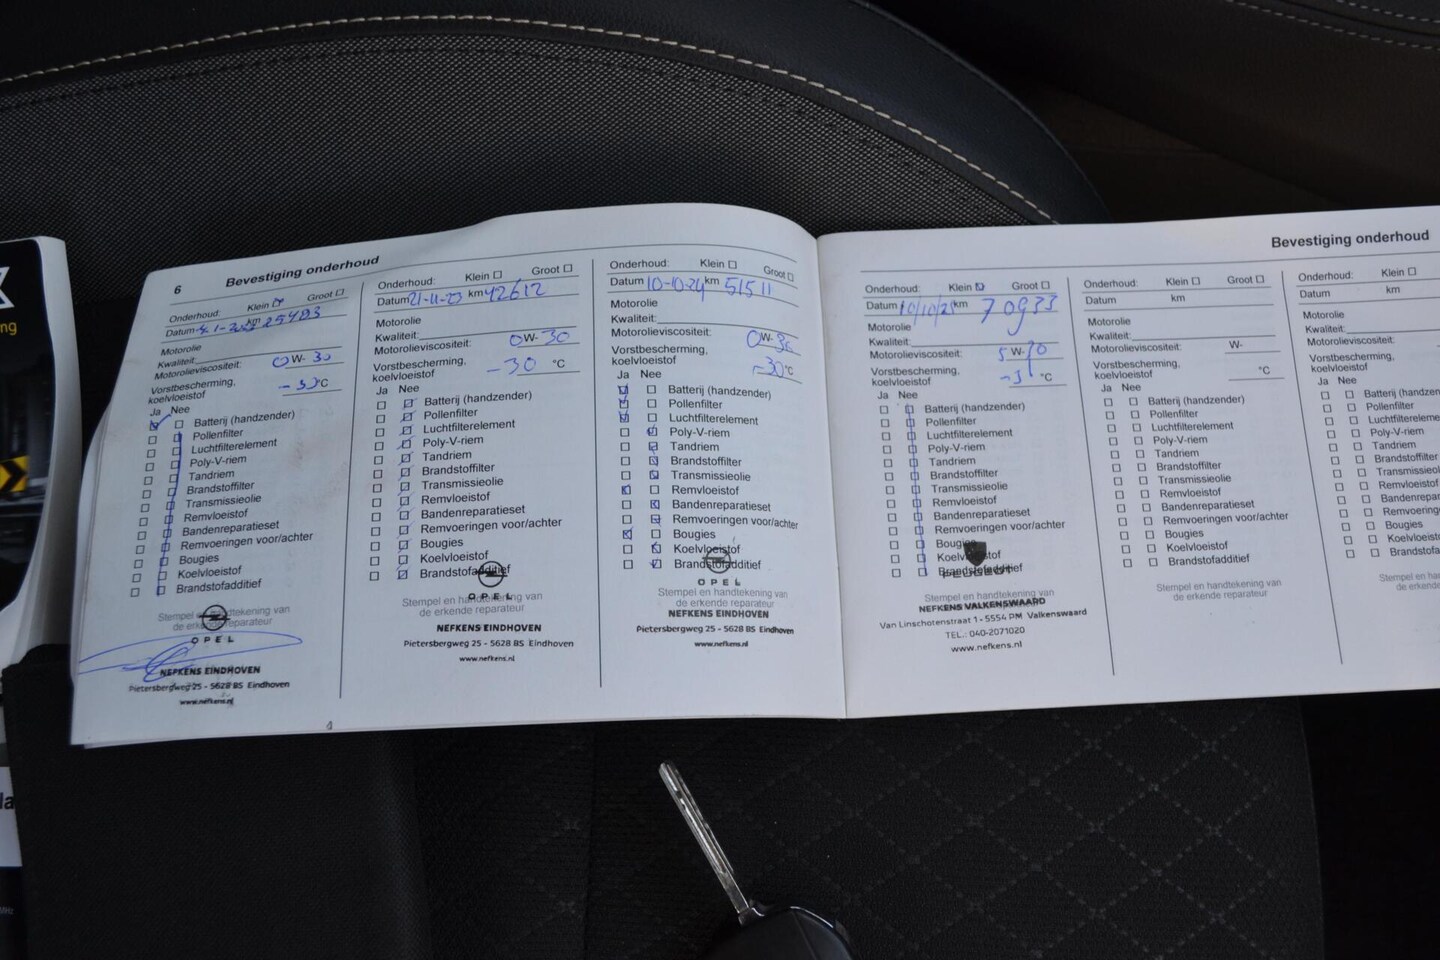 6 Bevestiging onderhoud
Onderhoud: Klein Groot
Datum km 25483
Motorolie
Kwaliteit:
Motorolieviscositeit: 0W- 30
Vorstbescherming,
koelvloeistof °C
Ja Nee
Batterij (handzender)
Pollenfilter
Luchtfilterelement
Poly-V-riem
Tandriem
Brandstoffilter
Transmissieolie
Remvloeistof
Bandenreparatieset
Remvoeringen voor/achter
Bougies
Koelvloeistof
Brandstofadditief
Stempel en handtekening van
de erkende reparateur
OPEL
NEFKENS EINDHOVEN
Pietersbergweg 25 - 5628 BS Eindhoven
www.nefkens.nl
Onderhoud: Klein Groot
Datum 21-11-23 km 42612
Motorolie
Kwaliteit:
Motorolieviscositeit: 0W- 30
Vorstbescherming,
koelvloeistof -30 °C
Ja Nee
Batterij (handzender)
Pollenfilter
Luchtfilterelement
Poly-V-riem
Tandriem
Brandstoffilter
Transmissieolie
Remvloeistof
Bandenreparatieset
Remvoeringen voor/achter
Bougies
Koelvloeistof
Brandstofadditief
Stempel en handtekening van
de erkende reparateur
OPEL
NEFKENS EINDHOVEN
Pietersbergweg 25 - 5628 BS Eindhoven
www.nefkens.nl
Onderhoud: Klein Groot
Datum 10-10-24 km 51511
Motorolie
Kwaliteit:
Motorolieviscositeit: 0W- 30
Vorstbescherming,
koelvloeistof -30 °C
Ja Nee
Batterij (handzender)
Pollenfilter
Luchtfilterelement
Poly-V-riem
Tandriem
Brandstoffilter
Transmissieolie
Remvloeistof
Bandenreparatieset
Remvoeringen voor/achter
Bougies
Koelvloeistof
Brandstofadditief
OPEL
Stempel en handtekening van
de erkende reparateur
NEFKENS EINDHOVEN
Pietersbergweg 25 - 5628 BS Eindhoven
www.nefkens.nl
Bevestiging onderhoud
Onderhoud: Klein Groot
Datum 10/10/25 km 70933
Motorolie
Kwaliteit:
Motorolieviscositeit: W-
Vorstbescherming,
koelvloeistof °C
Ja Nee
Batterij (handzender)
Pollenfilter
Luchtfilterelement
Poly-V-riem
Tandriem
Brandstoffilter
Transmissieolie
Remvloeistof
Bandenreparatieset
Remvoeringen voor/achter
Bougies
Koelvloeistof
Brandstofadditief
PEUGEOT
Stempel en handtekening van
de erkende reparateur
NEFKENS VALKENSWAARD
Van Linschotenstraat 1 - 5554 PM Valkenswaard
TEL.: 040-2071020
www.nefkens.nl
Onderhoud: Klein Groot
Datum km
Motorolie
Kwaliteit:
Motorolieviscositeit: W-
Vorstbescherming,
koelvloeistof °C
Ja Nee
Batterij (handzender)
Pollenfilter
Luchtfilterelement
Poly-V-riem
Tandriem
Brandstoffilter
Transmissieolie
Remvloeistof
Bandenreparatieset
Remvoeringen voor/achter
Bougies
Koelvloeistof
Brandstofadditief
Stempel en handtekening van
de erkende reparateur
Onderhoud: Klein
Datum km
Motorolie
Kwaliteit:
Motorolieviscositeit:
Vorstbescherming,
koelvloeistof
Ja Nee
Batterij (handze
Pollenfilter
Luchtfilterelem
Poly-V-riem
Tandriem
Brandstoffilte
Transmissieo
Remvloeistof
Bandenrepar
Remvoeringe
Bougies
Koelvloeisto
Brandstofa
Stempel en han
de erkend